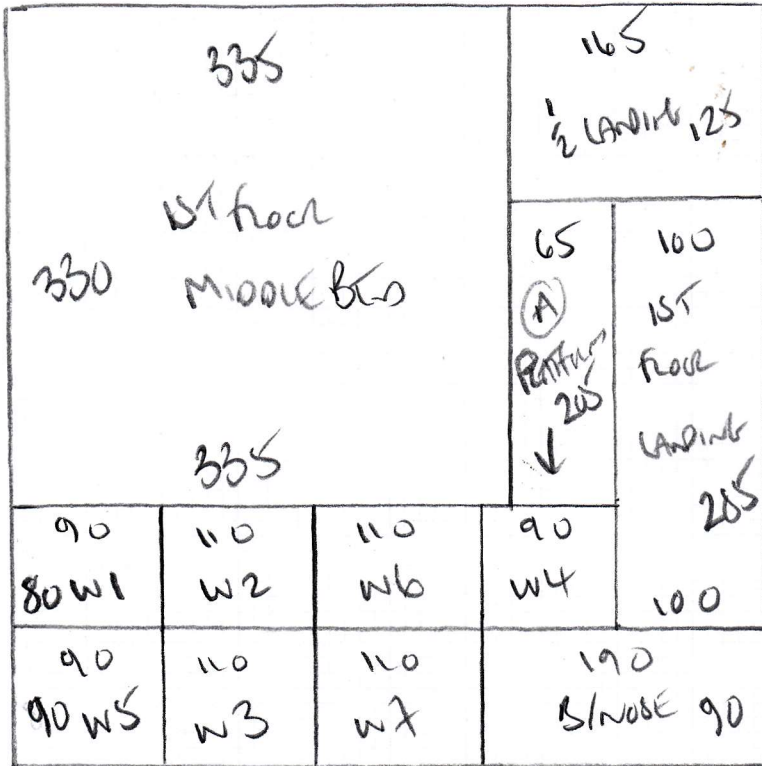 335
1ST FLOOR
330 MIDDLE BED
335
165
1/2 LANDING 125
65
A
PLATFORM
205
100
1ST
FLOOR
LANDING
285
100
90
80 W1
110
W2
110
W6
90
W4
90
90 W5
110
W3
110
W7
190
B/NOSE 90